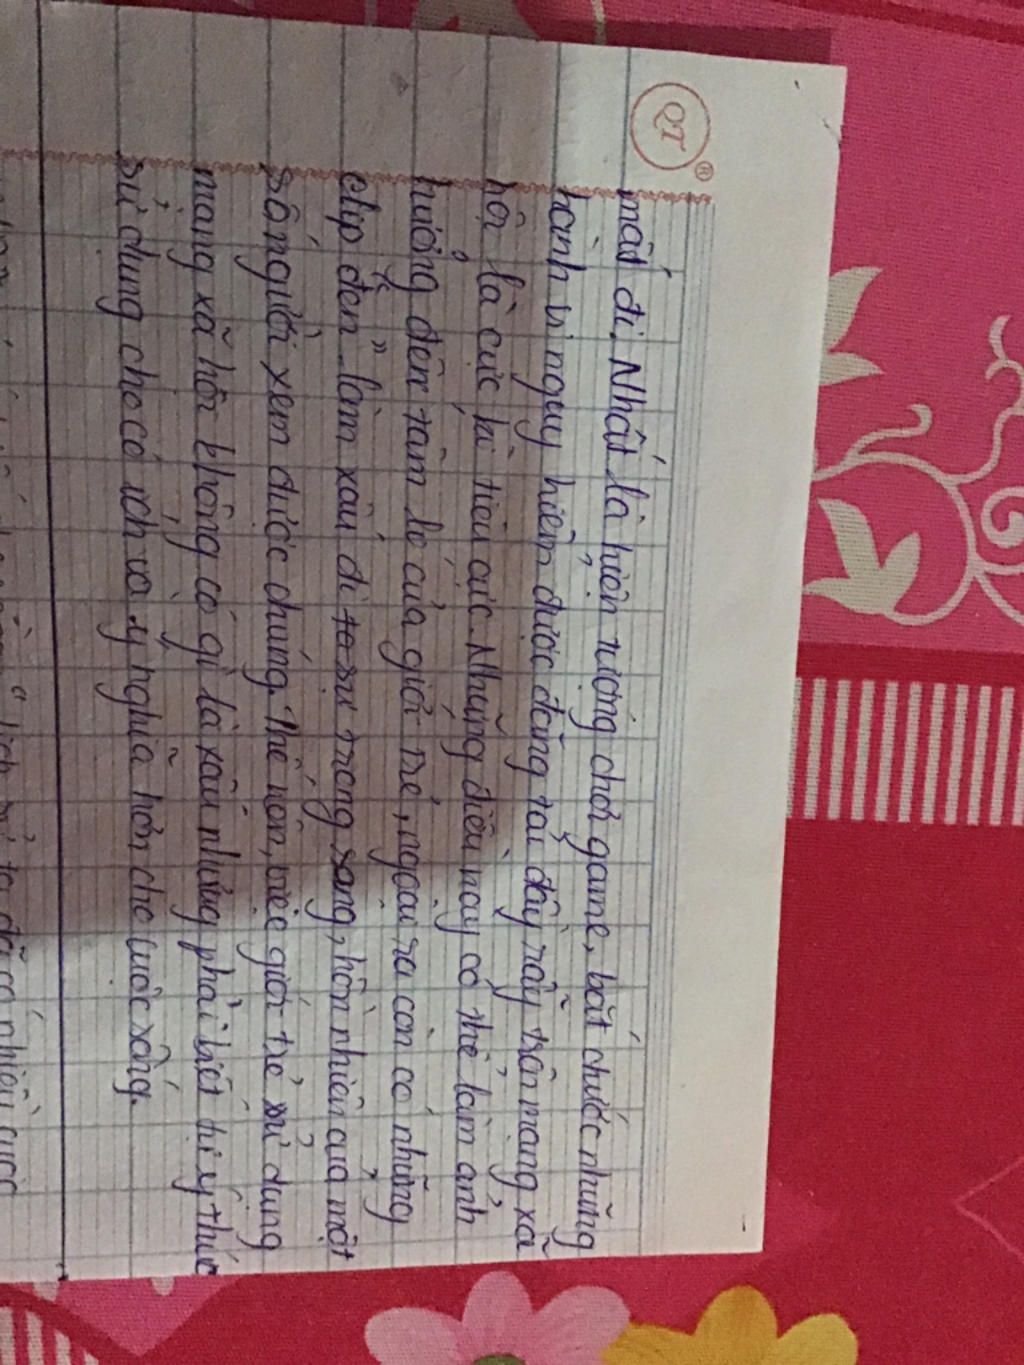 QT ®
mất đi. Nhất là hiện tượng chơi game, bắt chước những
hành vi nguy hiểm được đăng tải đầy rẫy trên mạng xã
hội là cực kì tiêu cực. Những điều này có thể làm ảnh
hưởng đến tâm lí của giới trẻ, ngoài ra còn có những
clip đen "tê" làm xấu đi sự trong sáng, hồn nhiên của một
số người xem được chúng. Thế nên, việc giới trẻ sử dụng
mạng xã hội không có gì là xấu nhưng phải biết tự ý thức
sử dụng cho có ích và ý nghĩa hơn cho cuộc sống.
ta đã có nhiều cuộc